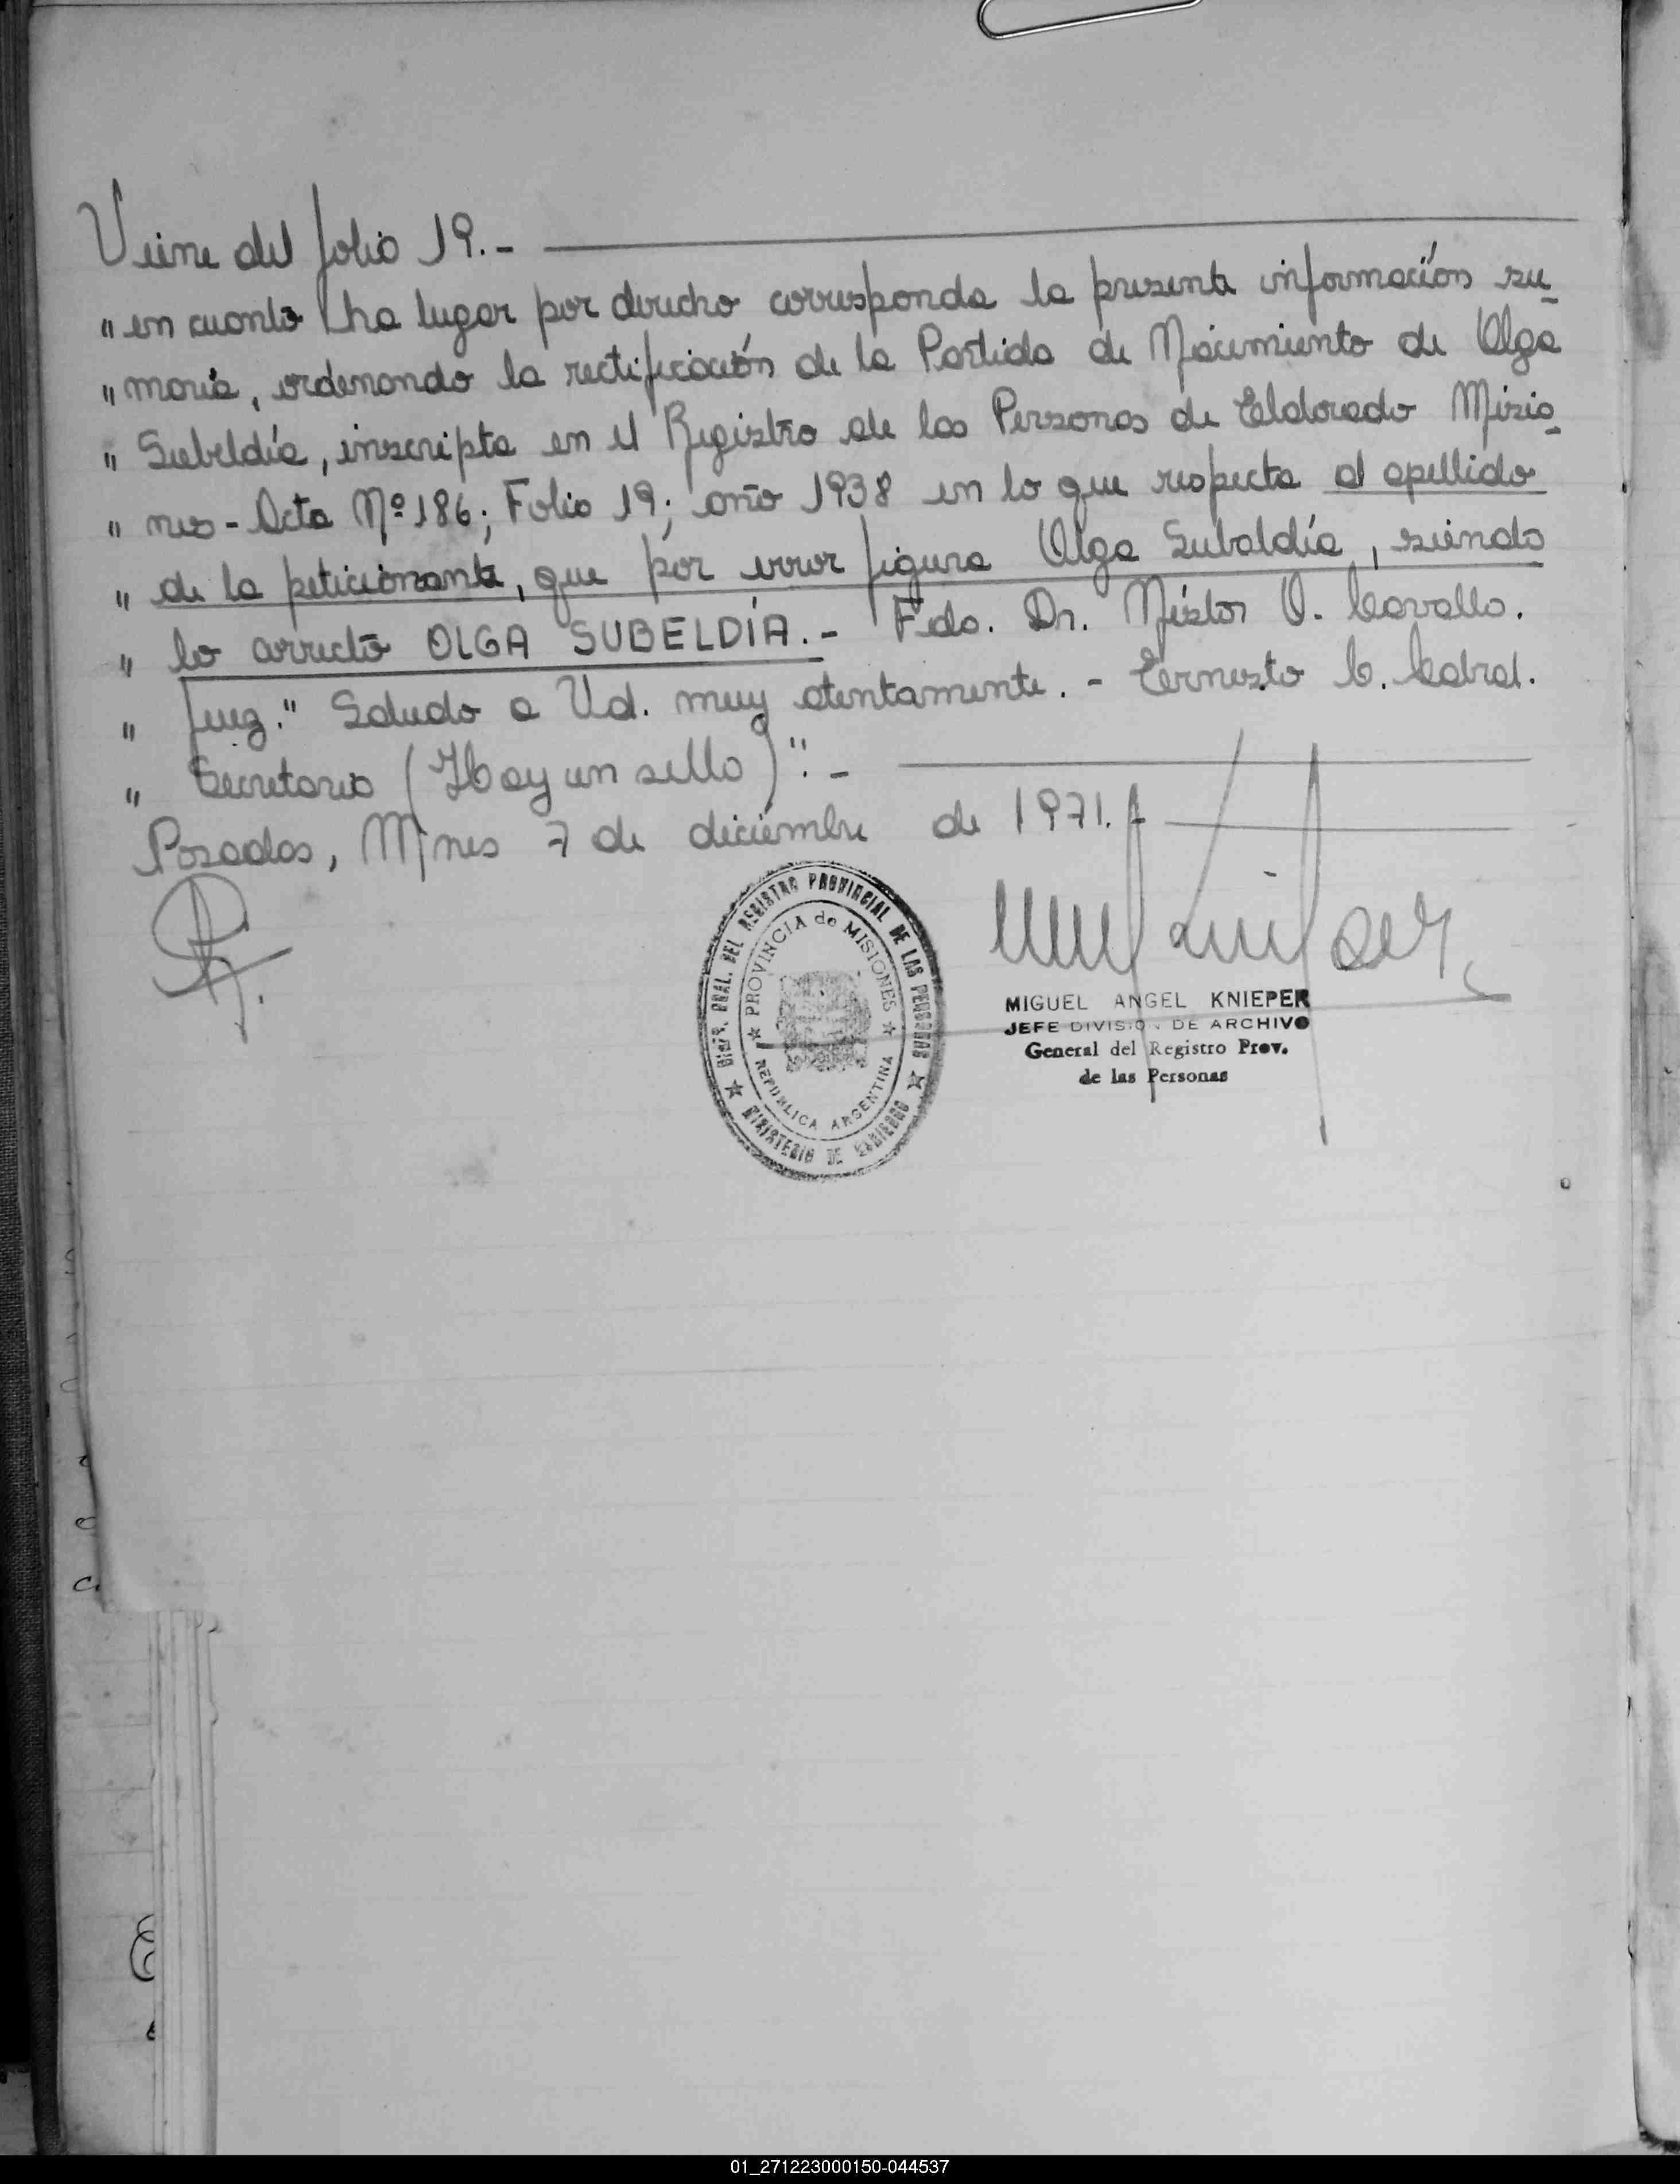 Viene del folio 19.-
" en cuanto ha lugar por derecho corresponda la presente información su-
" maria, ordenando la rectificación de la Partida de Nacimiento de Olga
" Subeldía, inscripta en el Registro de las Personas de Eldorado Misio-
" nes - Acta Nº 186; Folio 19; año 1938 en lo que respecta al apellido
" de la peticionante, que por error figura Olga Subaldía, siendo
" lo correcto OLGA SUBELDÍA.- Fdo. Dr. Néstor O. Cavallo.
" Juez." Saludo a Ud. muy atentamente. - Ernesto C. Cabral.
" Secretario (Hay un sello)".-
Posadas, Mnes 7 de diciembre de 1971.-
DIRE. GRAL. DEL REGISTRO PROVINCIAL DE LAS PERSONAS
PROVINCIA de MISIONES
REPUBLICA ARGENTINA
MINISTERIO DE GOBIERNO
MIGUEL ANGEL KNIEPER
JEFE DIVISION DE ARCHIVO
General del Registro Prov.
de las Personas
01_271223000150-044537